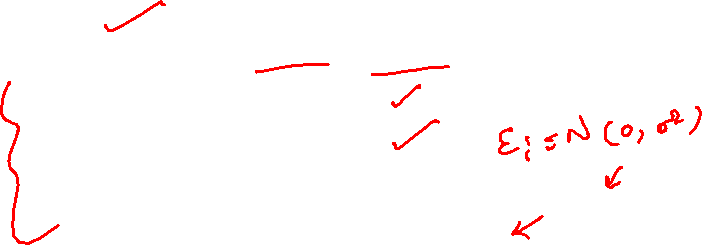 εi = N(0, σ²)